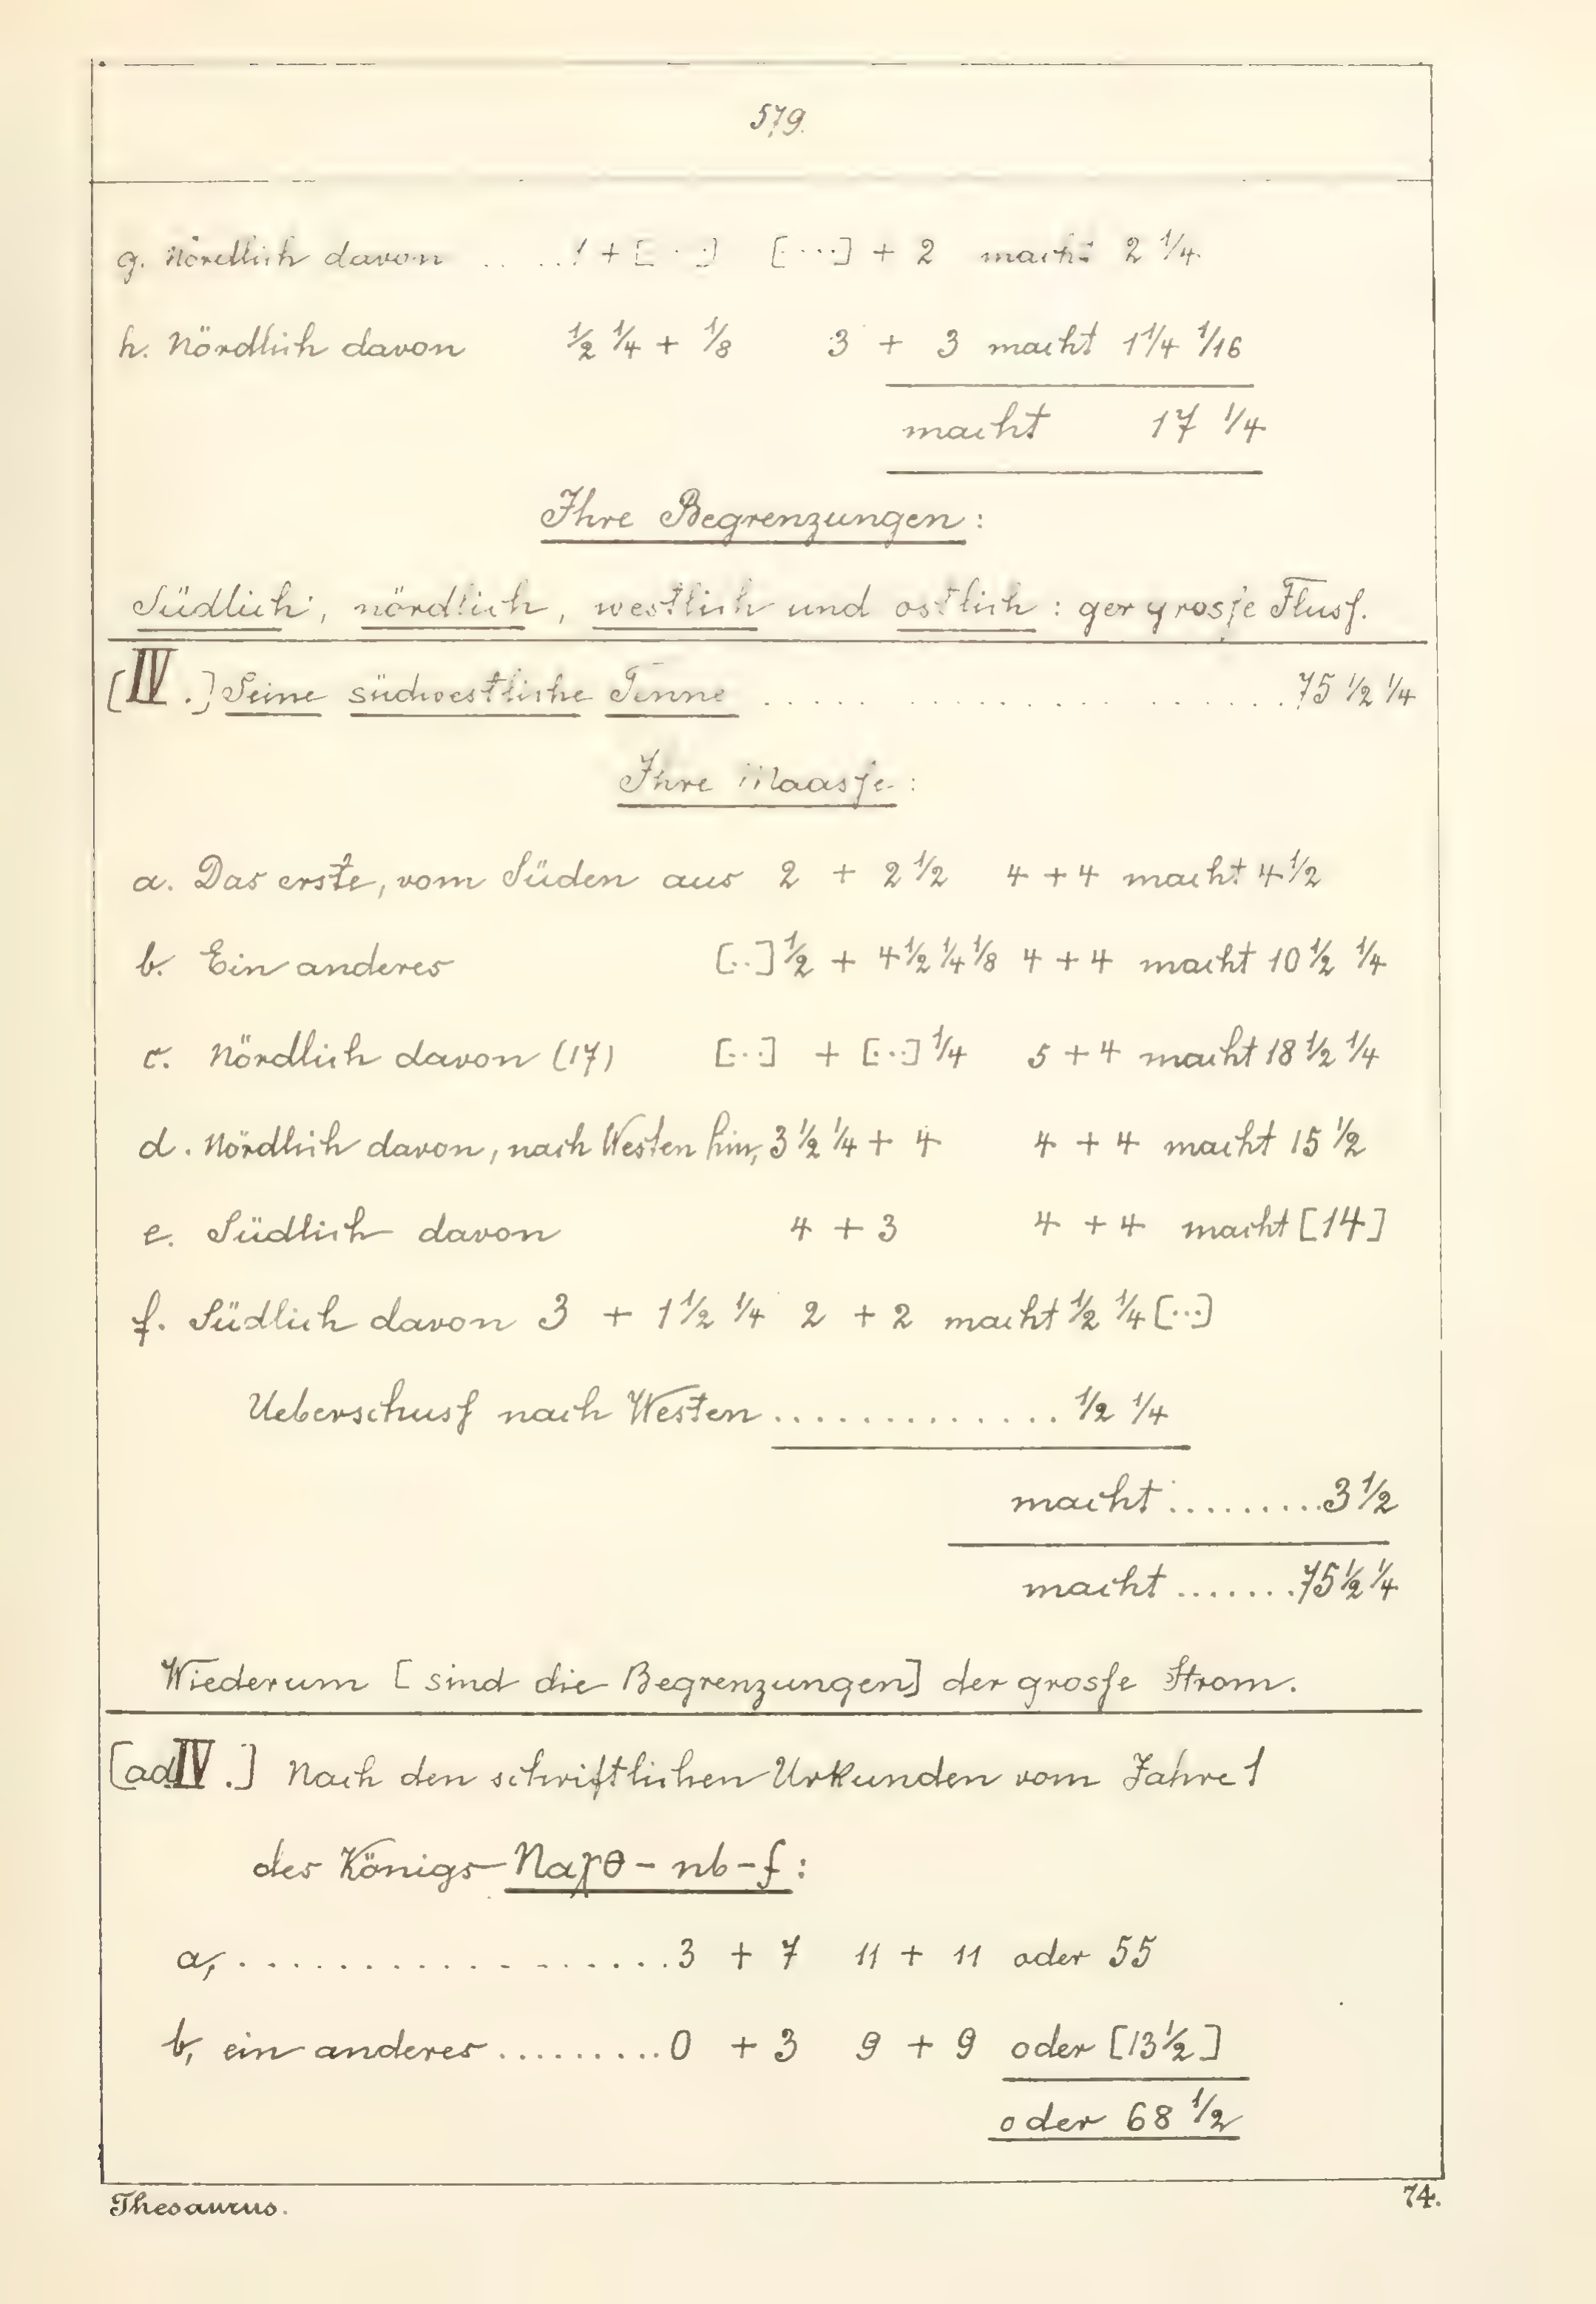 579.
g. Nördlich davon .. ...! + [...] [...] + 2 macht 2 1/4.
h. Nördlich davon 1/2 1/4 + 1/8 3 + 3 macht 1 1/4 1/16
macht 17 1/4
Ihre Begrenzungen:
Südlich, nördlich, westlich und östlich: ger grosse Fluss.
[IV.] Seine südwestliche Tenne ........................ 75 1/2 1/4
Ihre Maasse:
a. Das erste, vom Süden aus 2 + 2 1/2 4 + 4 macht 4 1/2
b. Ein anderes [..] 1/2 + 4 1/2 1/4 1/8 4 + 4 macht 10 1/2 1/4
c. Nördlich davon (17) [...] + [...] 1/4 5 + 4 macht 18 1/2 1/4
d. Nördlich davon, nach Westen hin, 3 1/2 1/4 + 4 4 + 4 macht 15 1/2
e. Südlich davon 4 + 3 4 + 4 macht [14]
f. Südlich davon 3 + 1 1/2 1/4 2 + 2 macht 1/2 1/4 [...]
Ueberschuss nach Westen ............. 1/2 1/4
macht ......... 3 1/2
macht ....... 75 1/2 1/4
Wiederum [sind die Begrenzungen] der grosse Strom.
[ad IV.] Nach den schriftlichen Urkunden vom Jahre 1
des Königs Naχθ-nb-f:
a, .................... 3 + 7 11 + 11 oder 55
b, ein anderes .......... 0 + 3 9 + 9 oder [13 1/2]
oder 68 1/2
Thesaurus. 74.